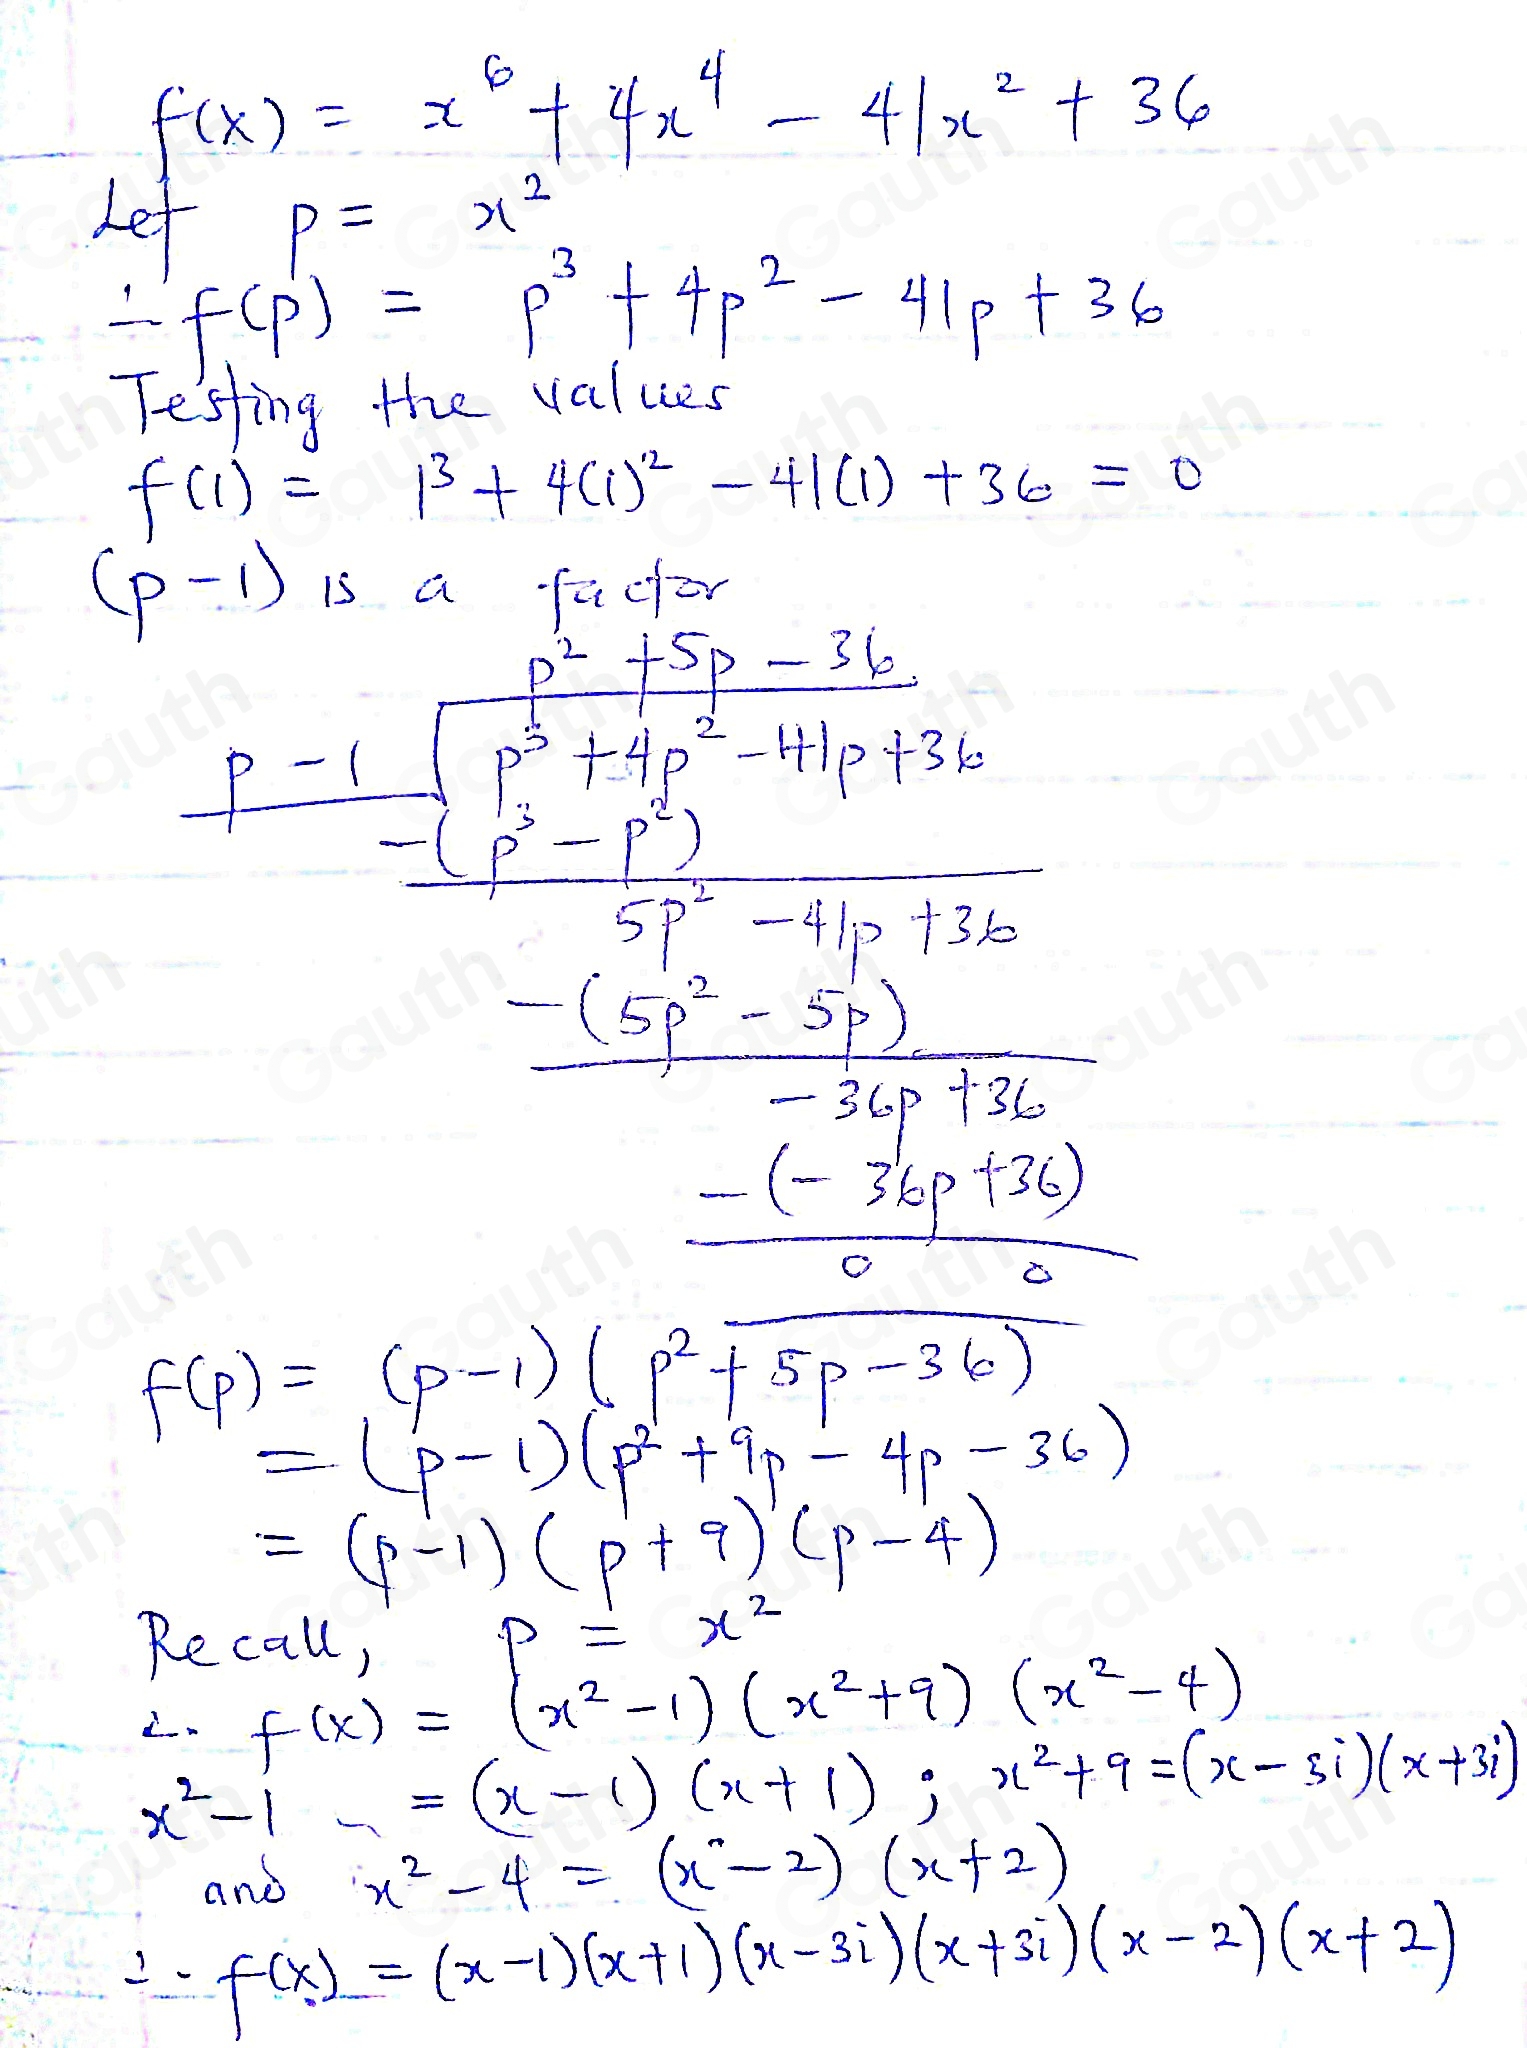 f(x) = x⁶ + 4x⁴ - 41x² + 36
Let p = x²
∴ f(p) = p³ + 4p² - 41p + 36
Testing the values
f(1) = 1³ + 4(1)² - 41(1) + 36 = 0
(p-1) is a factor
p² + 5p - 36
p - 1 p³ + 4p² - 41p + 36
-(p³ - p²)
5p² - 41p + 36
-(5p² - 5p)
- 36p + 36
-(- 36p + 36)
0 0
f(p) = (p-1)(p² + 5p - 36)
= (p-1)(p² + 9p - 4p - 36)
= (p-1)(p+9)(p-4)
Recall, p = x²
∴ f(x) = (x²-1)(x²+9)(x²-4)
x²-1 = (x-1)(x+1) ; x²+9 = (x-3i)(x+3i)
and x²-4 = (x-2)(x+2)
∴ f(x) = (x-1)(x+1)(x-3i)(x+3i)(x-2)(x+2)